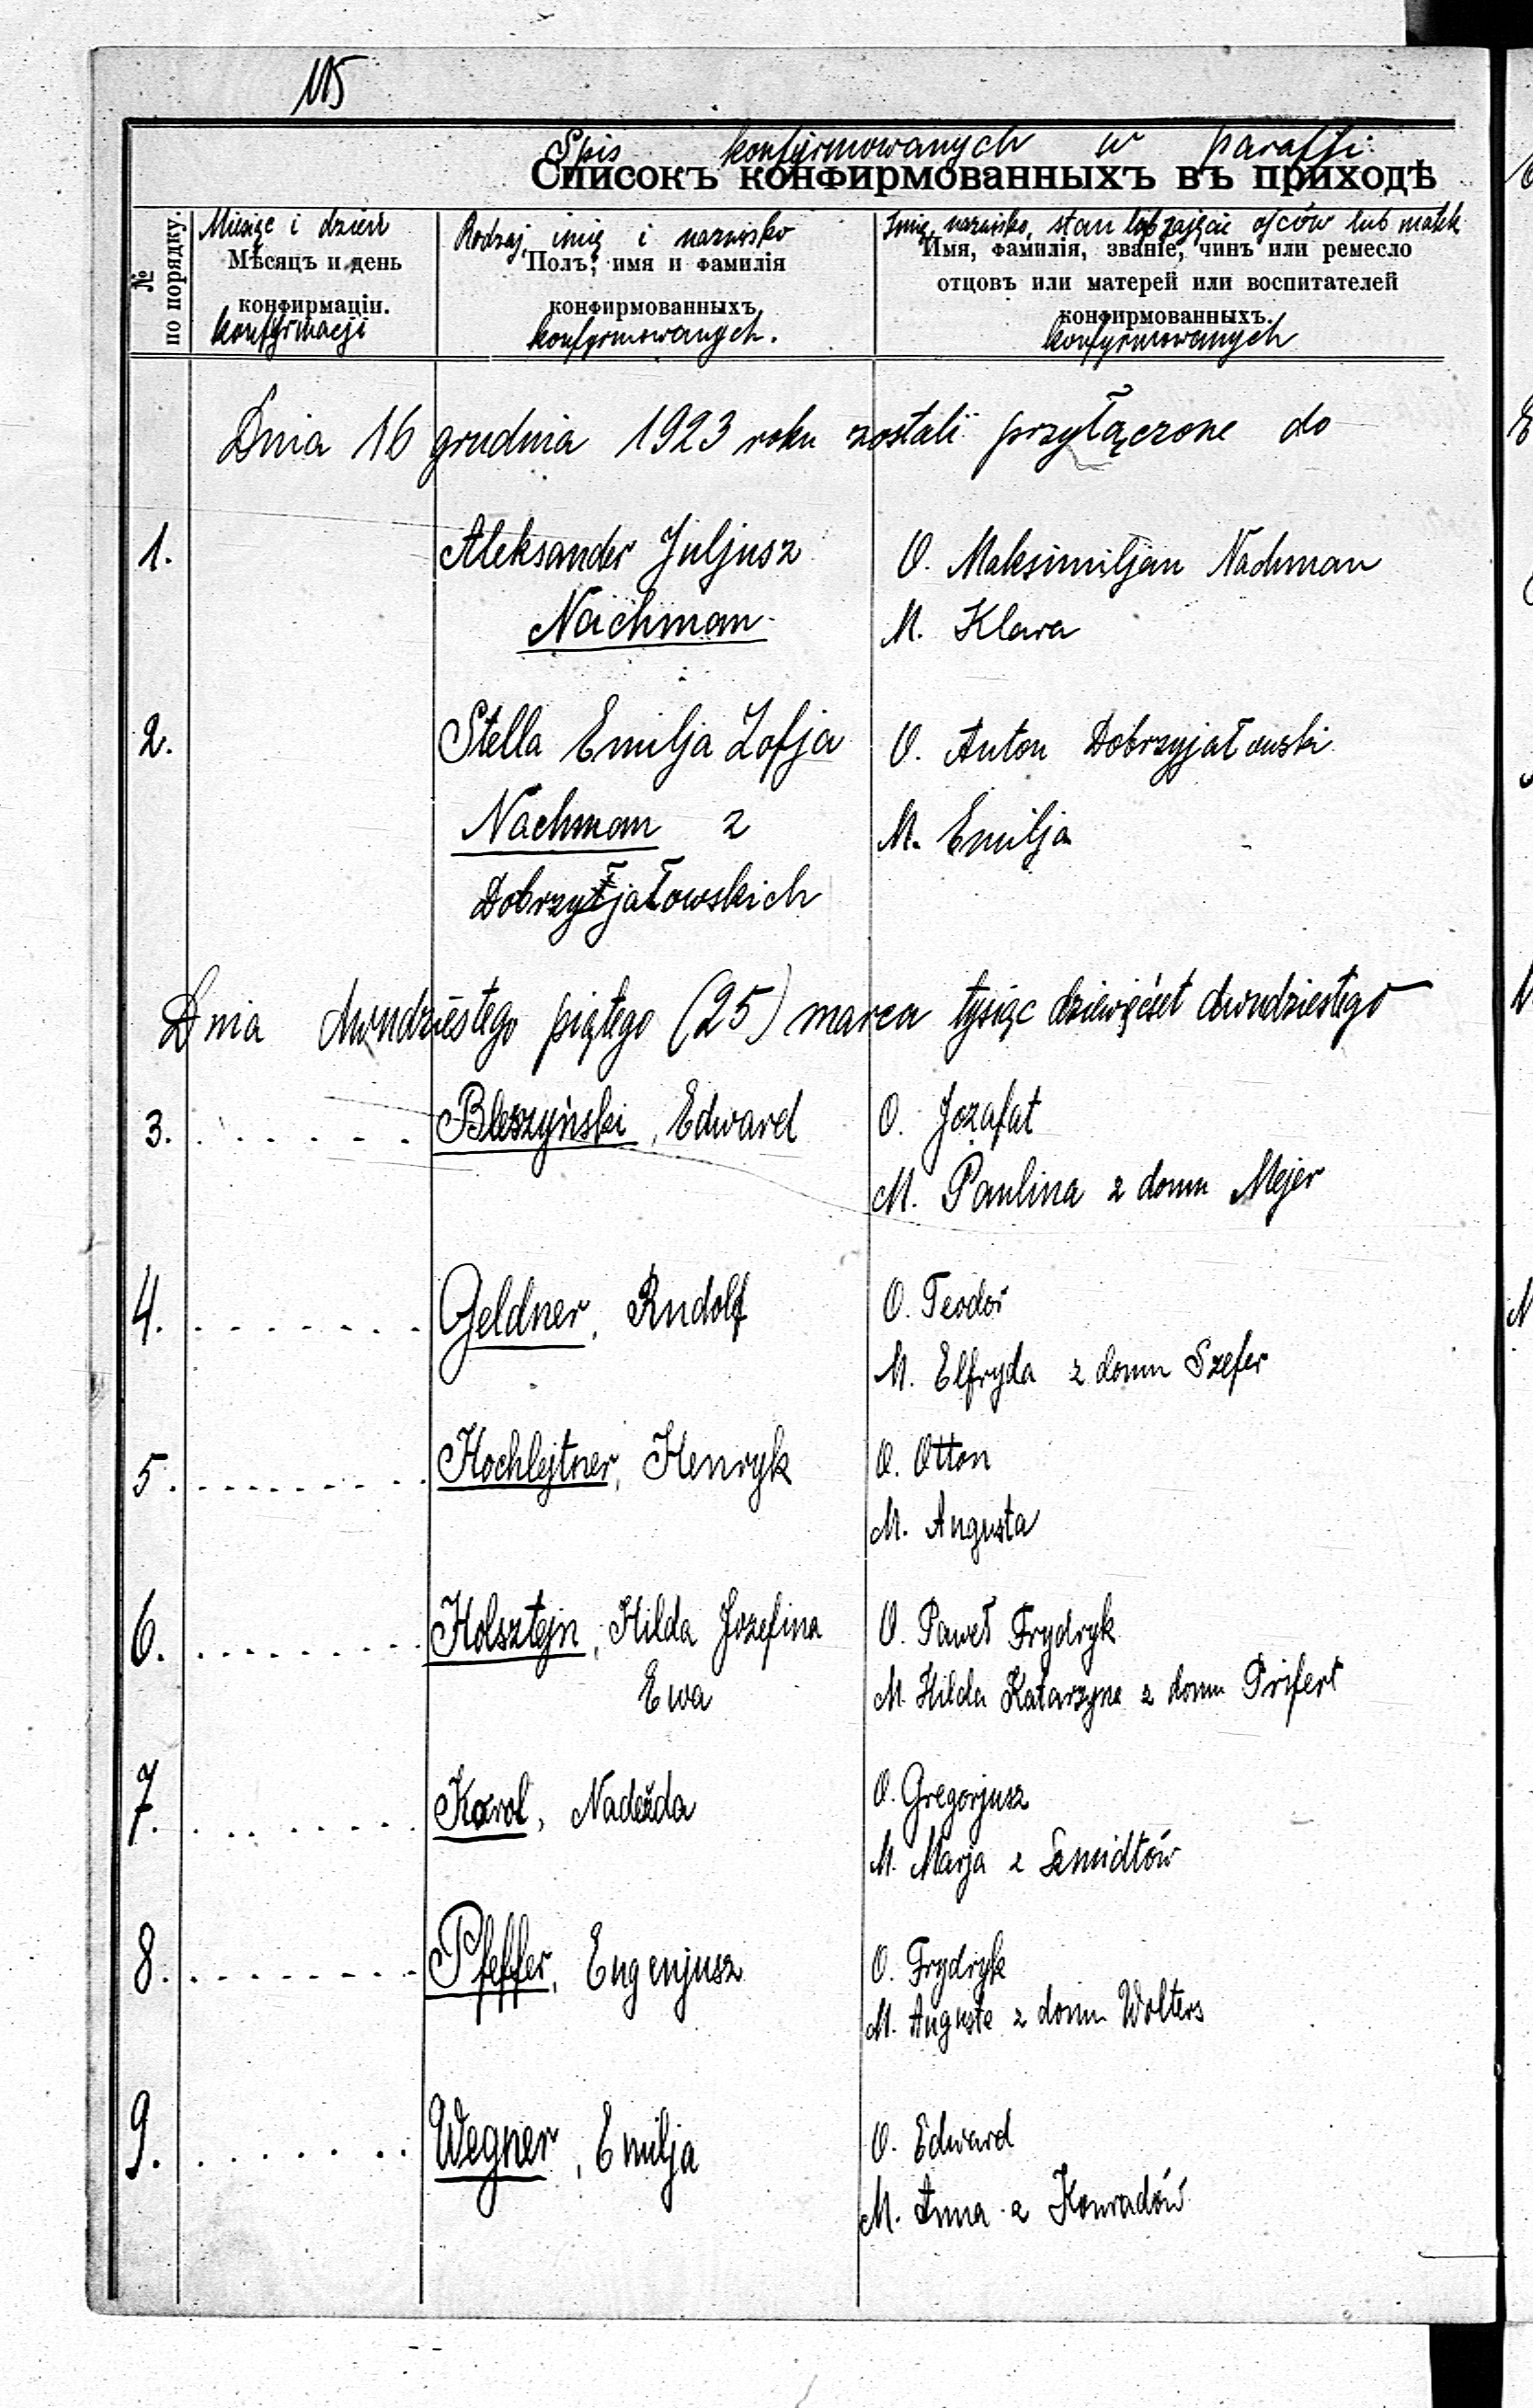 115
Spis konfyrmowanych w parafji
Списокъ конфирмованныхъ въ приходѣ
№ по порядку.
Miesiąc i dzień
Мѣсяцъ и день
конфирмаціи.
konfyrmacji
Rodzaj, imię i nazwisko
Полъ, имя и фамилія
конфирмованныхъ
konfyrmowanych.
Imię, nazwisko, stan lub zajęcie ojców lub matek
Имя, фамилія, званіе, чинъ или ремесло
отцовъ или матерей или воспитателей
конфирмованныхъ.
konfyrmowanych
Dnia 16 grudnia 1923 roku zostali przyłączone do
1. Aleksander Juljusz O. Maksimiljan Nachman
Nachman M. Klara
2. Stella Emilja Zofja O. Anton Dobrzyjałowski
Nachman z M. Emilja
Dobrzyjałowskich
Dnia dwudziestego piątego (25) marca tysiąc dziewięćset dwudziestego
3. . . . . . . Bleszyński, Edward O. Jozafat
M. Paulina z domu Mejer
4. . . . . . . . Geldner, Rudolf O. Teodor
M. Elfryda z domu Szefer
5. . . . . . . . . Hochlejtner, Henryk O. Otton
M. Augusta
6. . . . . . . . Holsztejn, Hilda Jozefina O. Paweł Frydryk
Ewa M. Hilda Katarzyna z domu Prifert
7. . . . . . . . Karol, Nadežda O. Gregorjusz
M. Marja z Szmidtów
8. . . . . . . . . Pfeffer, Eugenjusz O. Frydryk
M. Auguste z domu Wolters
9. . . . . . . Wegner, Emilja O. Edward
M. Anna z Konradów